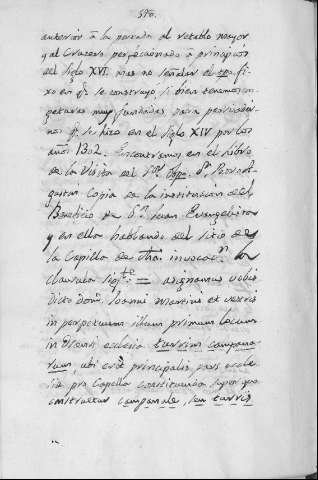 anterior à la portada del retablo mayor
y al Crucero perfeccionado a principios
del siglo XVI. mas no señalan el
xo en q.e se construyo si bien tenemos con-
geturas muy fundadas para persuadir-
nos q.e se hizo en el siglo XIV por los
años 1302. Encontramos en el libro
de la Visita del S.or Obpo. D.n
Copia de la institucion del
Beneficio de S.n Juan Evangelista
y en ella hablando del sitio de
la Capilla de dha. invocac.n la
clausula sig.te = asignamus vobis
dicto domi. Joanni Martins et vestris
in perpetuum illum primum locum
in ecclesia turrium campana
rum, ubi erat principalis pars eccle
sia pro Capella constituenda super quo
construetur campanale, seu turris